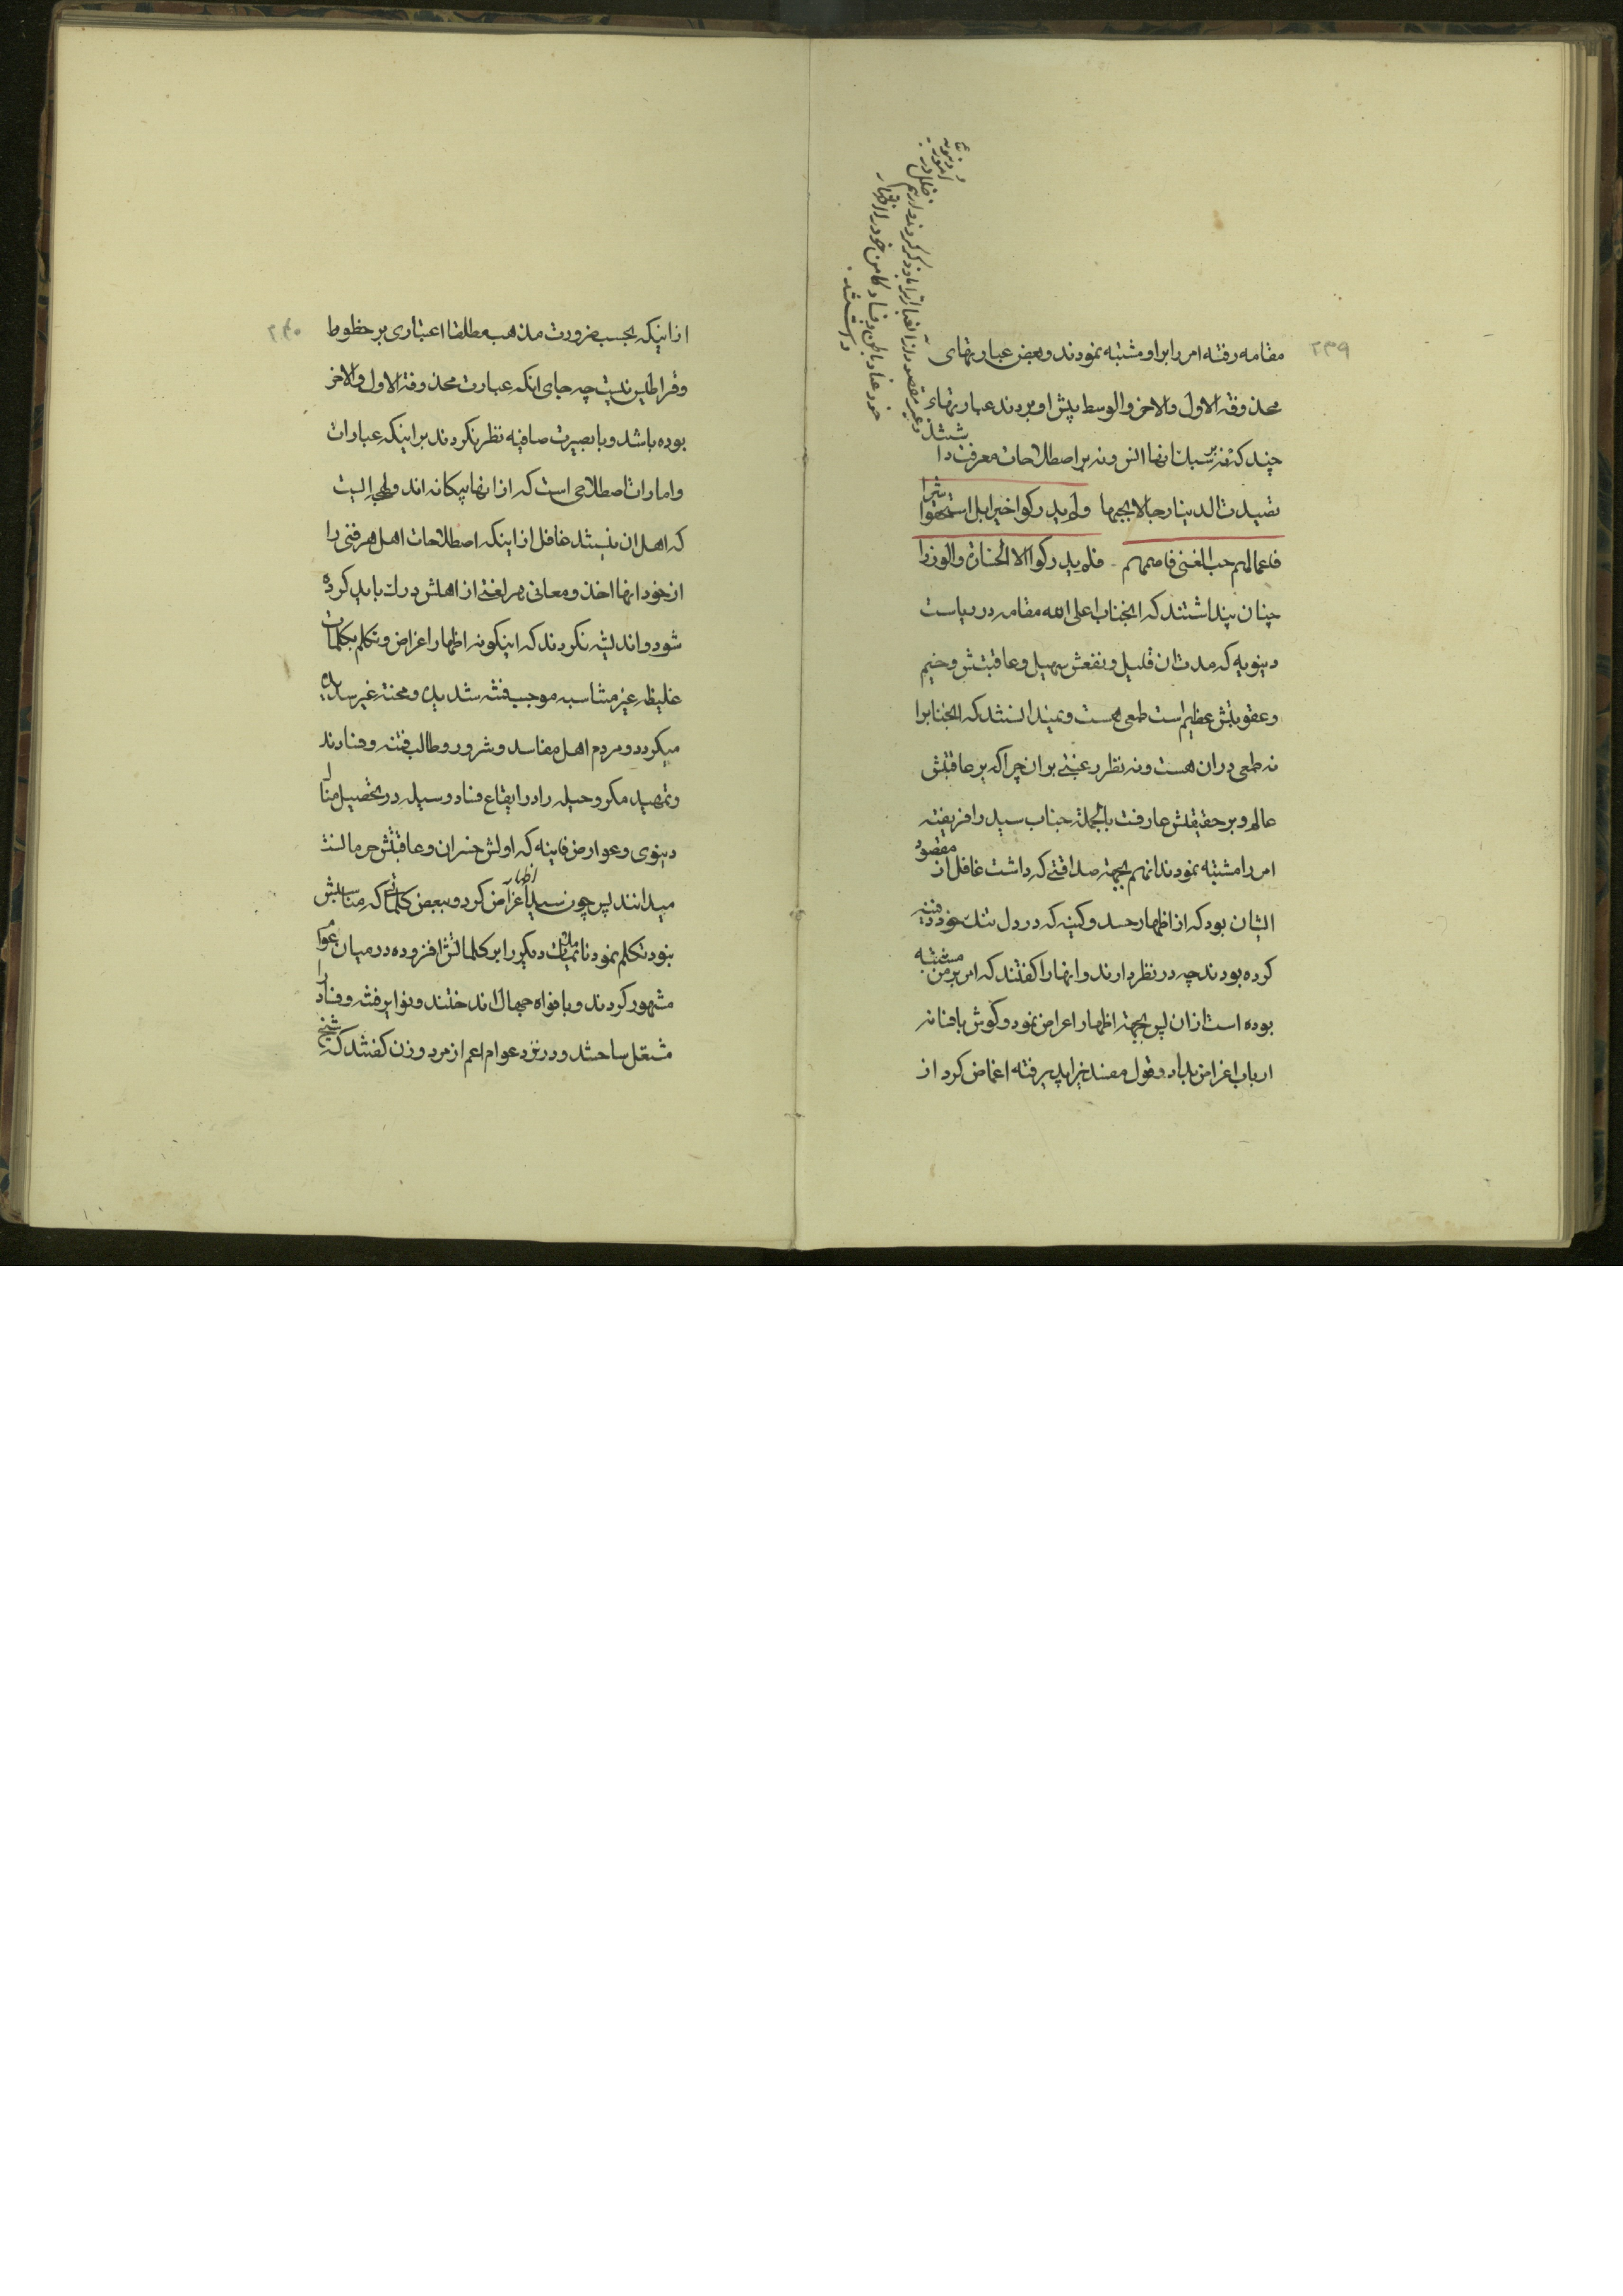 ۲۳۹
مقامه رفته امر را بر او مشتبه نمودند و بعض عبارتهای
محذوفة الاول والاخر والوسط پیش او بردند عبارتهاء
چند که نه بر سبک انها انس و نه بر اصطلاحات معرفت دا شتند
تصیدت الدنیا رجالا بحبها ولم یدرکوا خیرا بل استقبحوا شرا
فاعماهم حب الغنی فاصمهم فلم یدرکوا الا الخسارة والوزرا
چنان پنداشتند که انجناب اعلی الله مقامه در ریاست
دنیویه که مدت ان قلیل و نفعش سهیل و عاقبتش وخیم
و عقوبتش عظیم است طمعی هست و نمیدانستند که انجنابرا
نه طمعی دران هست و نه نظر رغبتی بران چرا که بر عاقبتش
عالم و بر حقیقتش عارفت بالجمله جناب سید را فریفته
امر را مشتبه نمودند انهم بجهة صداقتی که داشت غافل از مقصود
ایشان بود که از اظهار حسد و کینه که در دل تنک خود دفینه
کرده بودند چه در نظر دارند و انها را کفتند که امر بر من مشتبه
بوده است ازان پس بجهة اظهار اعراض نمود و کوش بافسانه
ارباب اغراض بداد و قول مفسدین را پذیرفته اغماض کرد از
و غیر مقصود از الفبا
خود عناد باطن و فساد کامن خود را اظهار
داشتند
۲۴۰
از اینکه بحسب ضرورت مذهب مطلقا اعتباری بر خطوط
و قراطیس نیست چه جای انکه عبارت محذوفة الاول والاخر
بوده باشد و با بصیرت صافیه نظر نکردند بر اینکه عبارات
و امارات اصطلاحی است که از انها بیکانه اند و لهجه ایست
که اهل ان نیستند غافل از اینکه اصطلاحات اهل هر فنی را
از خود انها اخذ و معانی هر لغتی از اهلش درک باید کرده
شود و اندیشه نکردند که اینکونه اظهار اغراض و تکلم بکلمات
غلیظه غیر مناسبه موجب فتنه شدیده و محنته غیر سدیده
میکردد و مردم اهل مفاسد و شرور و طالب فتنه و فسادند
و تمهید مکر و حیله را در ایقاع فساد وسیله در تحصیل منال
دنیوی و عوارض فانیه که اولش خسران و عاقبتش حرمانست
میدانند پس چون سید اظهار اعراض کرد و ببعض کلماتی که مناسبش
نبود تکلم نمود نا تمامات دیکر را بر کلماتش افزوده در میان عوام
مشهور کردند و بافواه جهال انداختند و نوایر فتنه و فساد را
مشتعل ساختند و در نزد عوام اعم از مرد و زن کفتند که شیخ